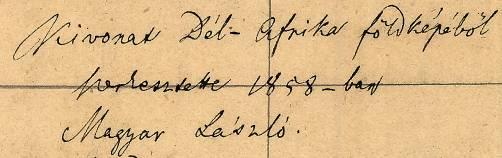 Kivonat Dél-Afrika földképéböl
szerkesztette 1858-ban
Magyar László.